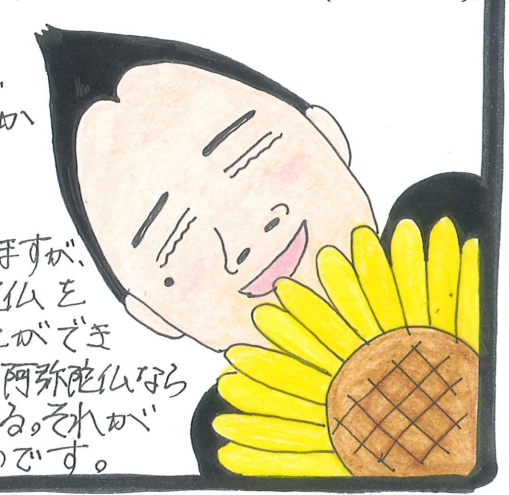 か
ますが、
仏を
とができ
阿弥陀仏なら
る。それが
のです。